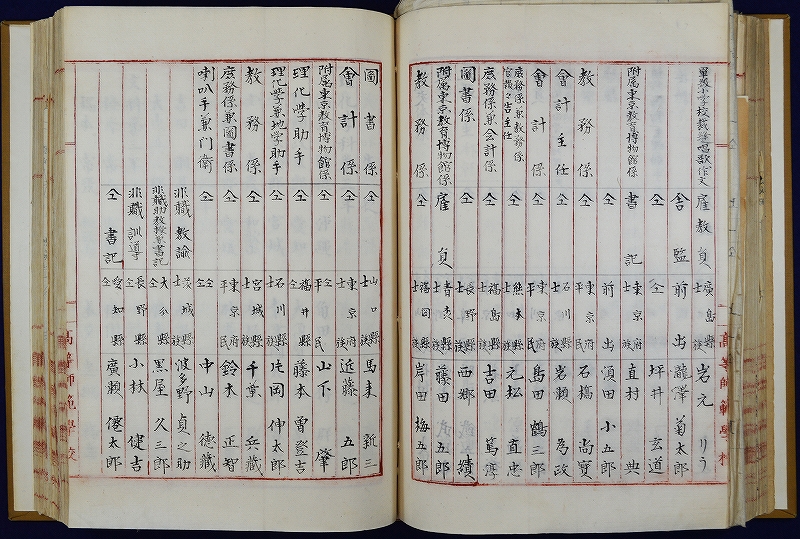 單級小学校裁縫唱歌作文 雇教員 廣島縣士族 岩元 りう
舎監 前出 瀧澤 菊太郎
仝 仝 坪井 玄道
附属東京教育博物館係 書記 東京府士族 直村 典
仝 前出 濵田 小五郎
教務係 仝 東京府平民 石橋 尚寳
會計主任 仝 石川縣士族 岩瀬 為政
會計係 仝 東京府平民 島田 鶴三郎
庶務係兼教務係 官報報告主任 仝 熊本縣士族 元松 直忠
庶務係兼会計係 仝 福島縣士族 吉田 篤淳
圖書係 仝 長野縣士族 西郷 績
附属東京教育博物館係 雇員 青森縣士族 藤田 五郎
教務係 仝 福岡縣士族 岸田 梅五郎
圖書係 仝 山口縣士族 馬来 新三
會計係 仝 東京府士族 近藤 五郎
附属東京教育博物館係 仝 仝平民 山下 肇
理化学助手 仝 福井縣仝 藤本 曽登吉
理化学兼地学助手 仝 石川縣士族 片岡 伸太郎
教務係 仝 宮城縣士族 千葉 兵藏
庶務係兼圖書係 仝 東京府平民 鈴木 正智
喇叭手兼門衛 仝 仝仝 中山 徳藏
非職教諭 茨城縣士族 波多野 貞之助
非職助教授兼書記 大分縣仝 黒屋 久三郎
非職訓導 長野縣仝 小林 健吉
仝書記 愛知縣仝 廣瀬 僊太郎
高等師範學校
高等師範學校